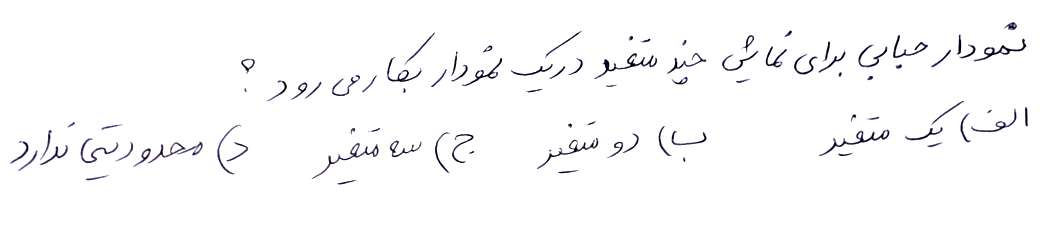 نمودار حبابی برای نمایش چند متغیر در یک نمودار بکار می رود ؟
الف) یک متغیر ب) دو متغیر ج) سه متغیر د) محدودیتی ندارد